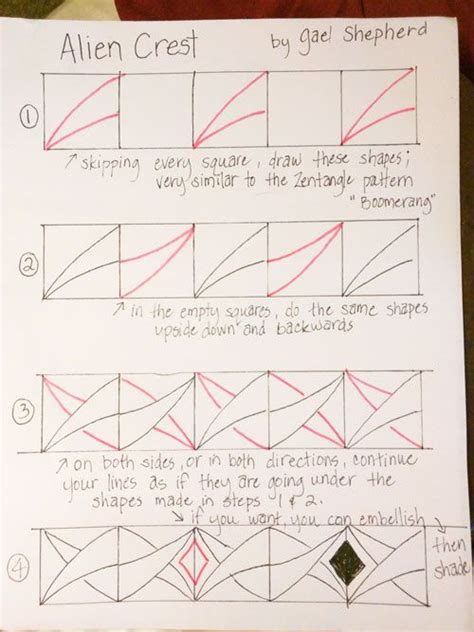 Alien Crest
by Gael Shepherd
1
↗ skipping every square, draw these shapes;
very similar to the Zentangle pattern
"Boomerang"
2
↗ in the empty squares, do the same shapes
upside down and backwards
3
↗ on both sides, or in both directions, continue
your lines as if they are going under the
shapes made in steps 1 & 2.
↘ if you want, you can embellish
↘ then
shade
4